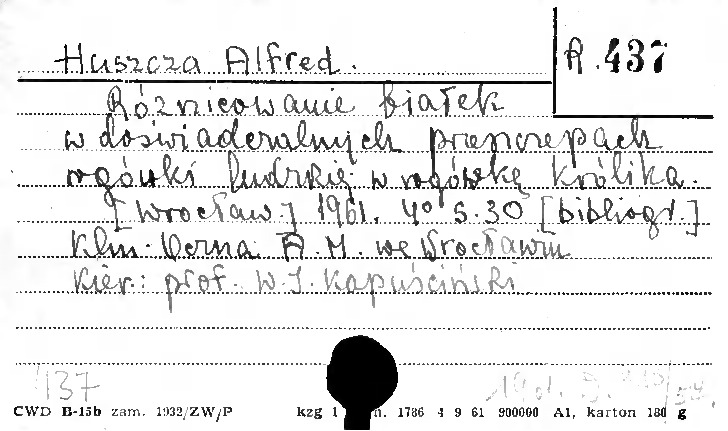 Huszcza Alfred.
R. 437
Różnicowanie białek
w doświadczalnych przeszczepach
rogówki ludzkiej w rogówkę królika.
[Wrocław] 1961. 4° s. 30 [bibliogr.]
Klin. Oczna A.M. we Wrocławiu
Kier.: prof. W.J. Kapuściński
437
CWD B-15b zam. 1932/ZW/P kzg 1 n. 1786 4 9 61 900000 A1, karton 180 g